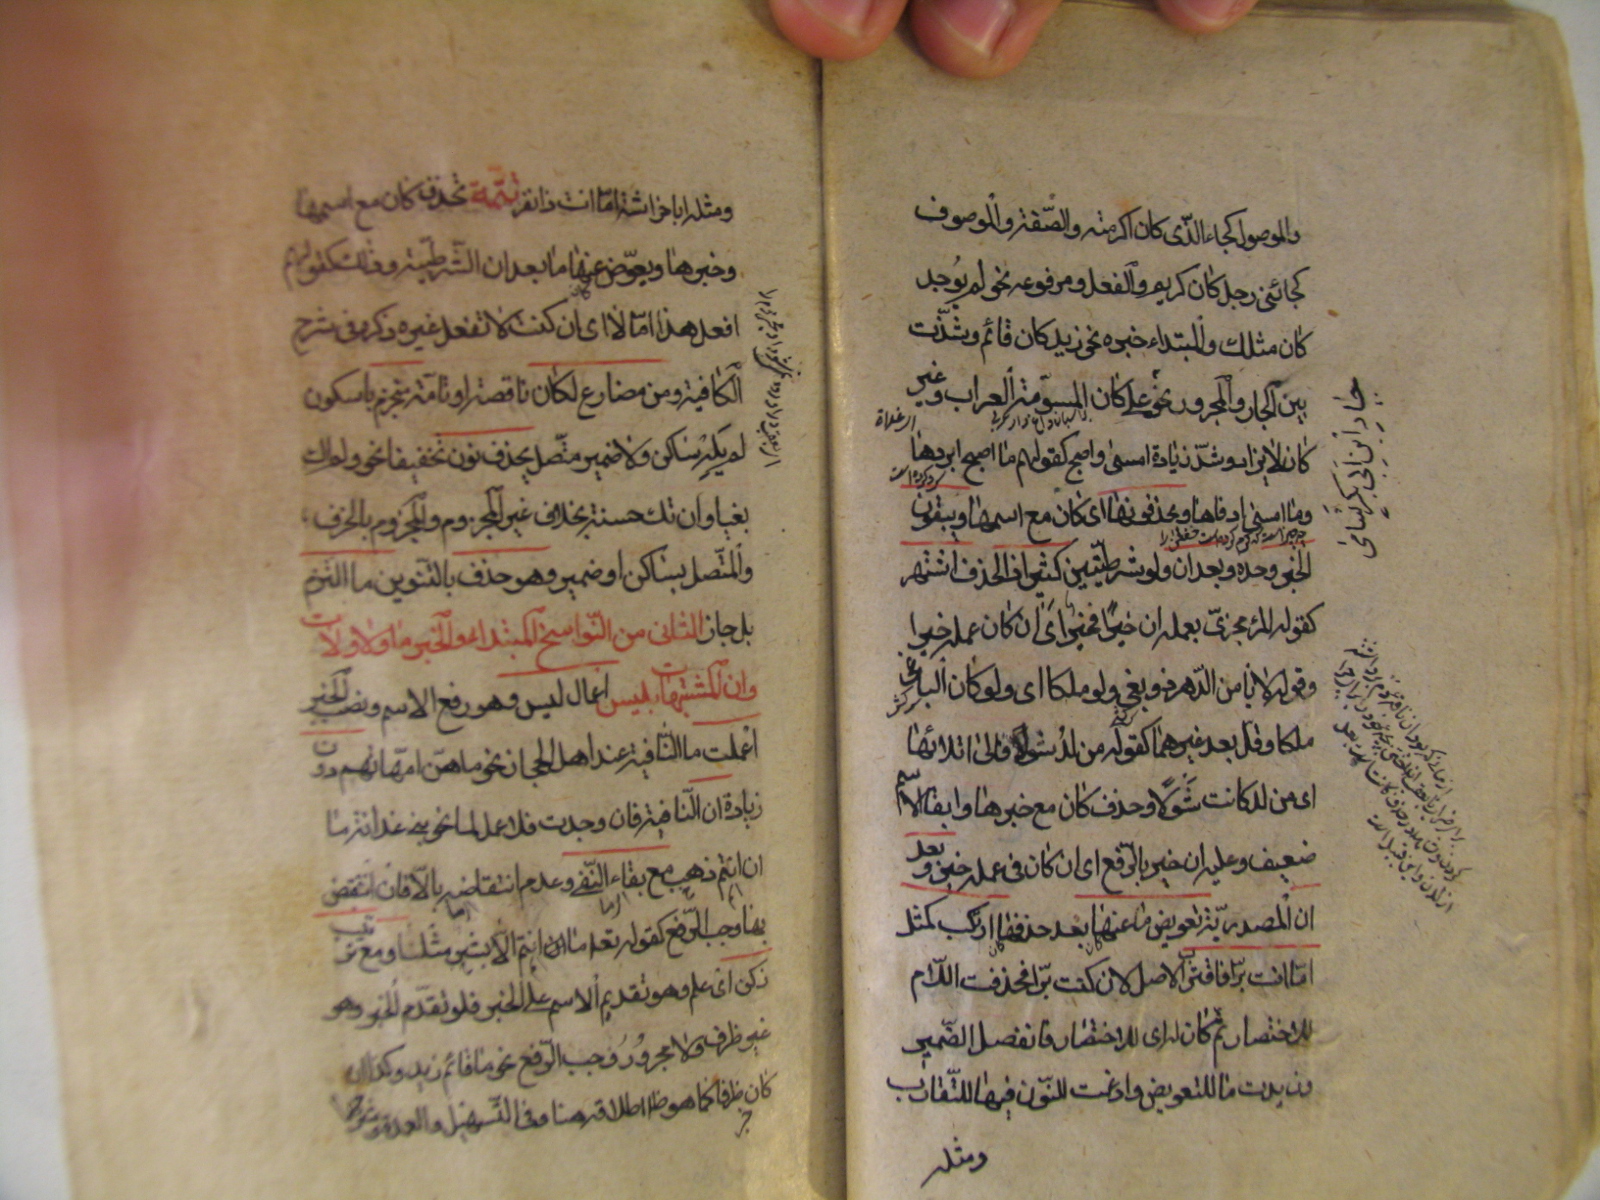 والموصول كجاء الذى كان اكرمته والصفة والموصوف
كجائنى رجل كان كريم والفعل ومرفوعه نحو لم يوجد
كان مثلك والمبتداء خبره نحو زيد كان قائم وشذت
بين الجار والمجرور نحو على كان المسومة العراب وغير
كان لايزاد وشذ زيادة امسى واصبح كقولهم ما اصبح ابردها
وما امسى ادفاها ويحذفونها اى كان مع اسمها ويبقون
الخبر وحده وبعد ان ولو شرطيتين كثيرا ذا الحذف اشتهر
كقوله المرء مجزى بعمله ان خيرا فخير اى ان كان عمله خيرا
وقوله لا يامن الدهر ذو بغى ولو ملكا اى ولو كان الباغى
ملكا وقل بعد غيرهما كقوله من لد شولا فالى اتلائها
اى من لد كانت شولا وحذف كان مع خبرها وابقا الاسم
ضعيف وعليه ان خير بالرفع اى ان كان فى عمله خير وبعد
ان المصدرية تعويض ما عنها بعد حذفها ارتكب كمثل
اما انت برا فاقترب الاصل لان كنت برا فحذفت اللام
للاختصار ثم كان له اى للاختصار فانفصل الضمير
وزيدت ما للتعويض وادغمت النون فيها للتقارب
ومثله
جابر بن ابى بكر شامى
ومثله ابا خراشة اما انت ذا نفر تتمة تحذف كان مع اسمها
وخبرها ويعوض عنها ما بعد ان الشرطية وذلك كقولهم
افعل هذا اما لا اى ان كنت لا تفعل غيره ذكره فى شرح
الكافية ومن مضارع لكان ناقصة او تامة منجزم باسكون
لم يكن ساكن ولا ضمير متصل يحذف نون تخفيفا نحو ولم اك
بغيا وان تك حسنة بخلاف غير المجزوم والمجزوم بالحذف
والمتصل بساكن او ضمير وهو حذف بالتنوين ما التزم
بل جاز الثانى من النواسخ المبتداء والخبر ما ولا ولات
وان المشبهات بليس اعمال ليس وهو رفع الاسم ونصب الخبر
اعملت ما النافية عند اهل الحجاز نحو ما هن امهاتهم دون
زيادة ان النافية فان وجدت فلا عمل لما نحو بنى غدانة ما
ان انتم ذهب مع بقاء النفى وعدم انتقاضه بالا فان انتقض
بها وجب الرفع كقوله تعالى ما انتم الا بشر مثلنا ومع ترتيب
زكن اى علم وهو تقديم الاسم على الخبر فلو تقدم الخبر وهو
غير ظرف ولا مجرور وجب الرفع نحو ما قائم زيد وكذا ان
كان ظرفا كما هو ظ اطلاقه هنا وفى التسهيل والعمدة وشرحها